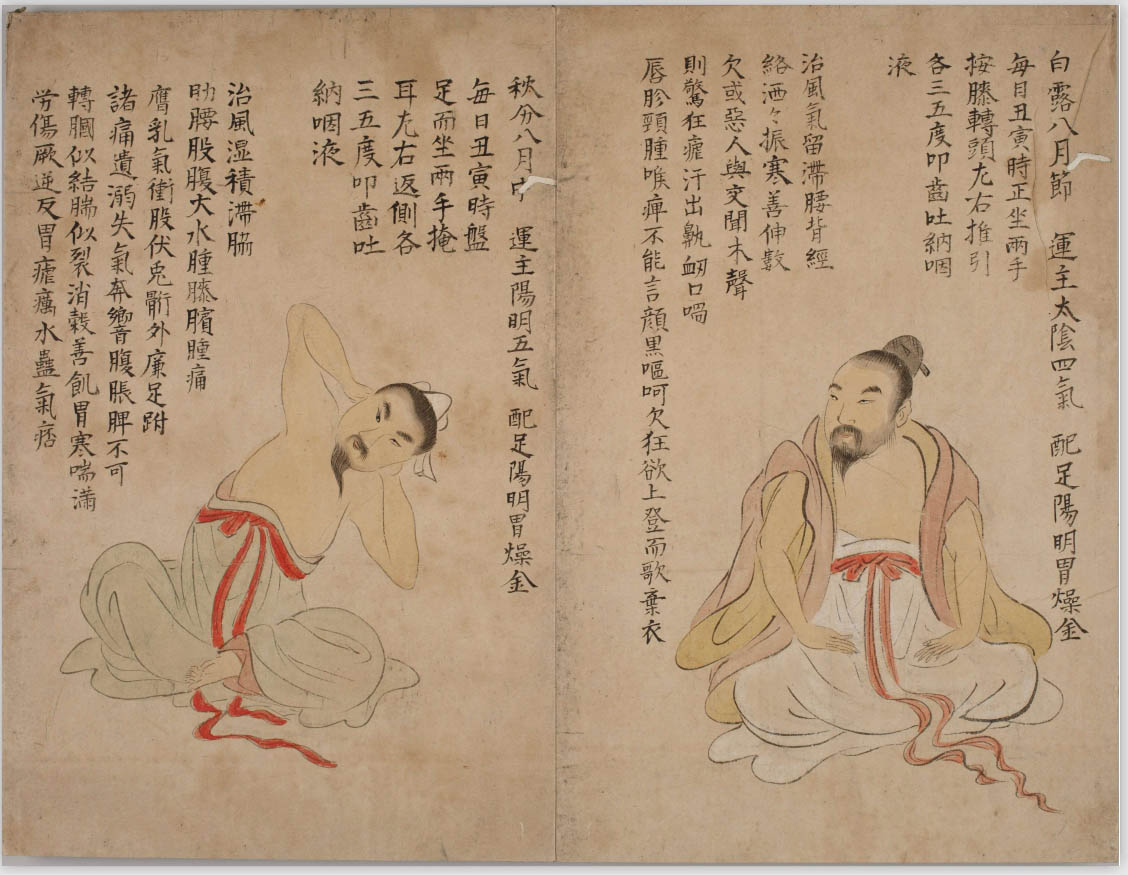 白露八月節　運主太陰四氣　配足陽明胃燥金
每日丑寅時正坐兩手
按膝轉頭左右推引
各三五度叩齒吐納咽
液
治風氣留滯腰背經
絡洒々振寒善伸數
欠或惡人與火聞木聲
則驚狂瘧汗出鼽衂口喎
唇胗頸腫喉痺不能言顔黒嘔呵欠狂欲上登而歌棄衣
秋分八月中　運主陽明五氣　配足陽明胃燥金
每日丑寅時盤
足而坐兩手掩
耳左右返側各
三五度叩齒吐
納咽液
治風湿積滯脇
肋腰股腹大水腫膝臏腫痛
膺乳氣衝股伏兎骭外廉足跗
諸痛遺溺失氣奔響腹脹脾不可
轉膕似結腨似裂消穀善飢胃寒喘滿
労傷厥逆反胃瘧癘水蠱氣痞